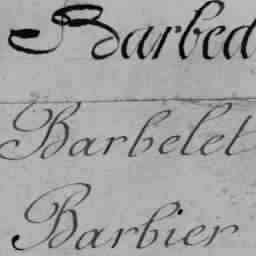 Barbed
Barbelet
Barbier